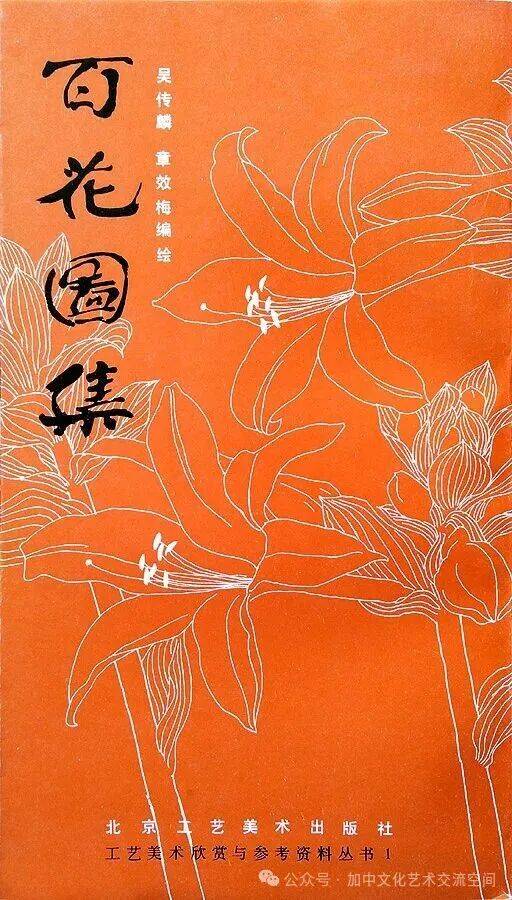 百花圖集
吴传麟 章效梅编绘
北京工艺美术出版社
工艺美术欣赏与参考资料丛书1
公众号·加中文化艺术交流空间